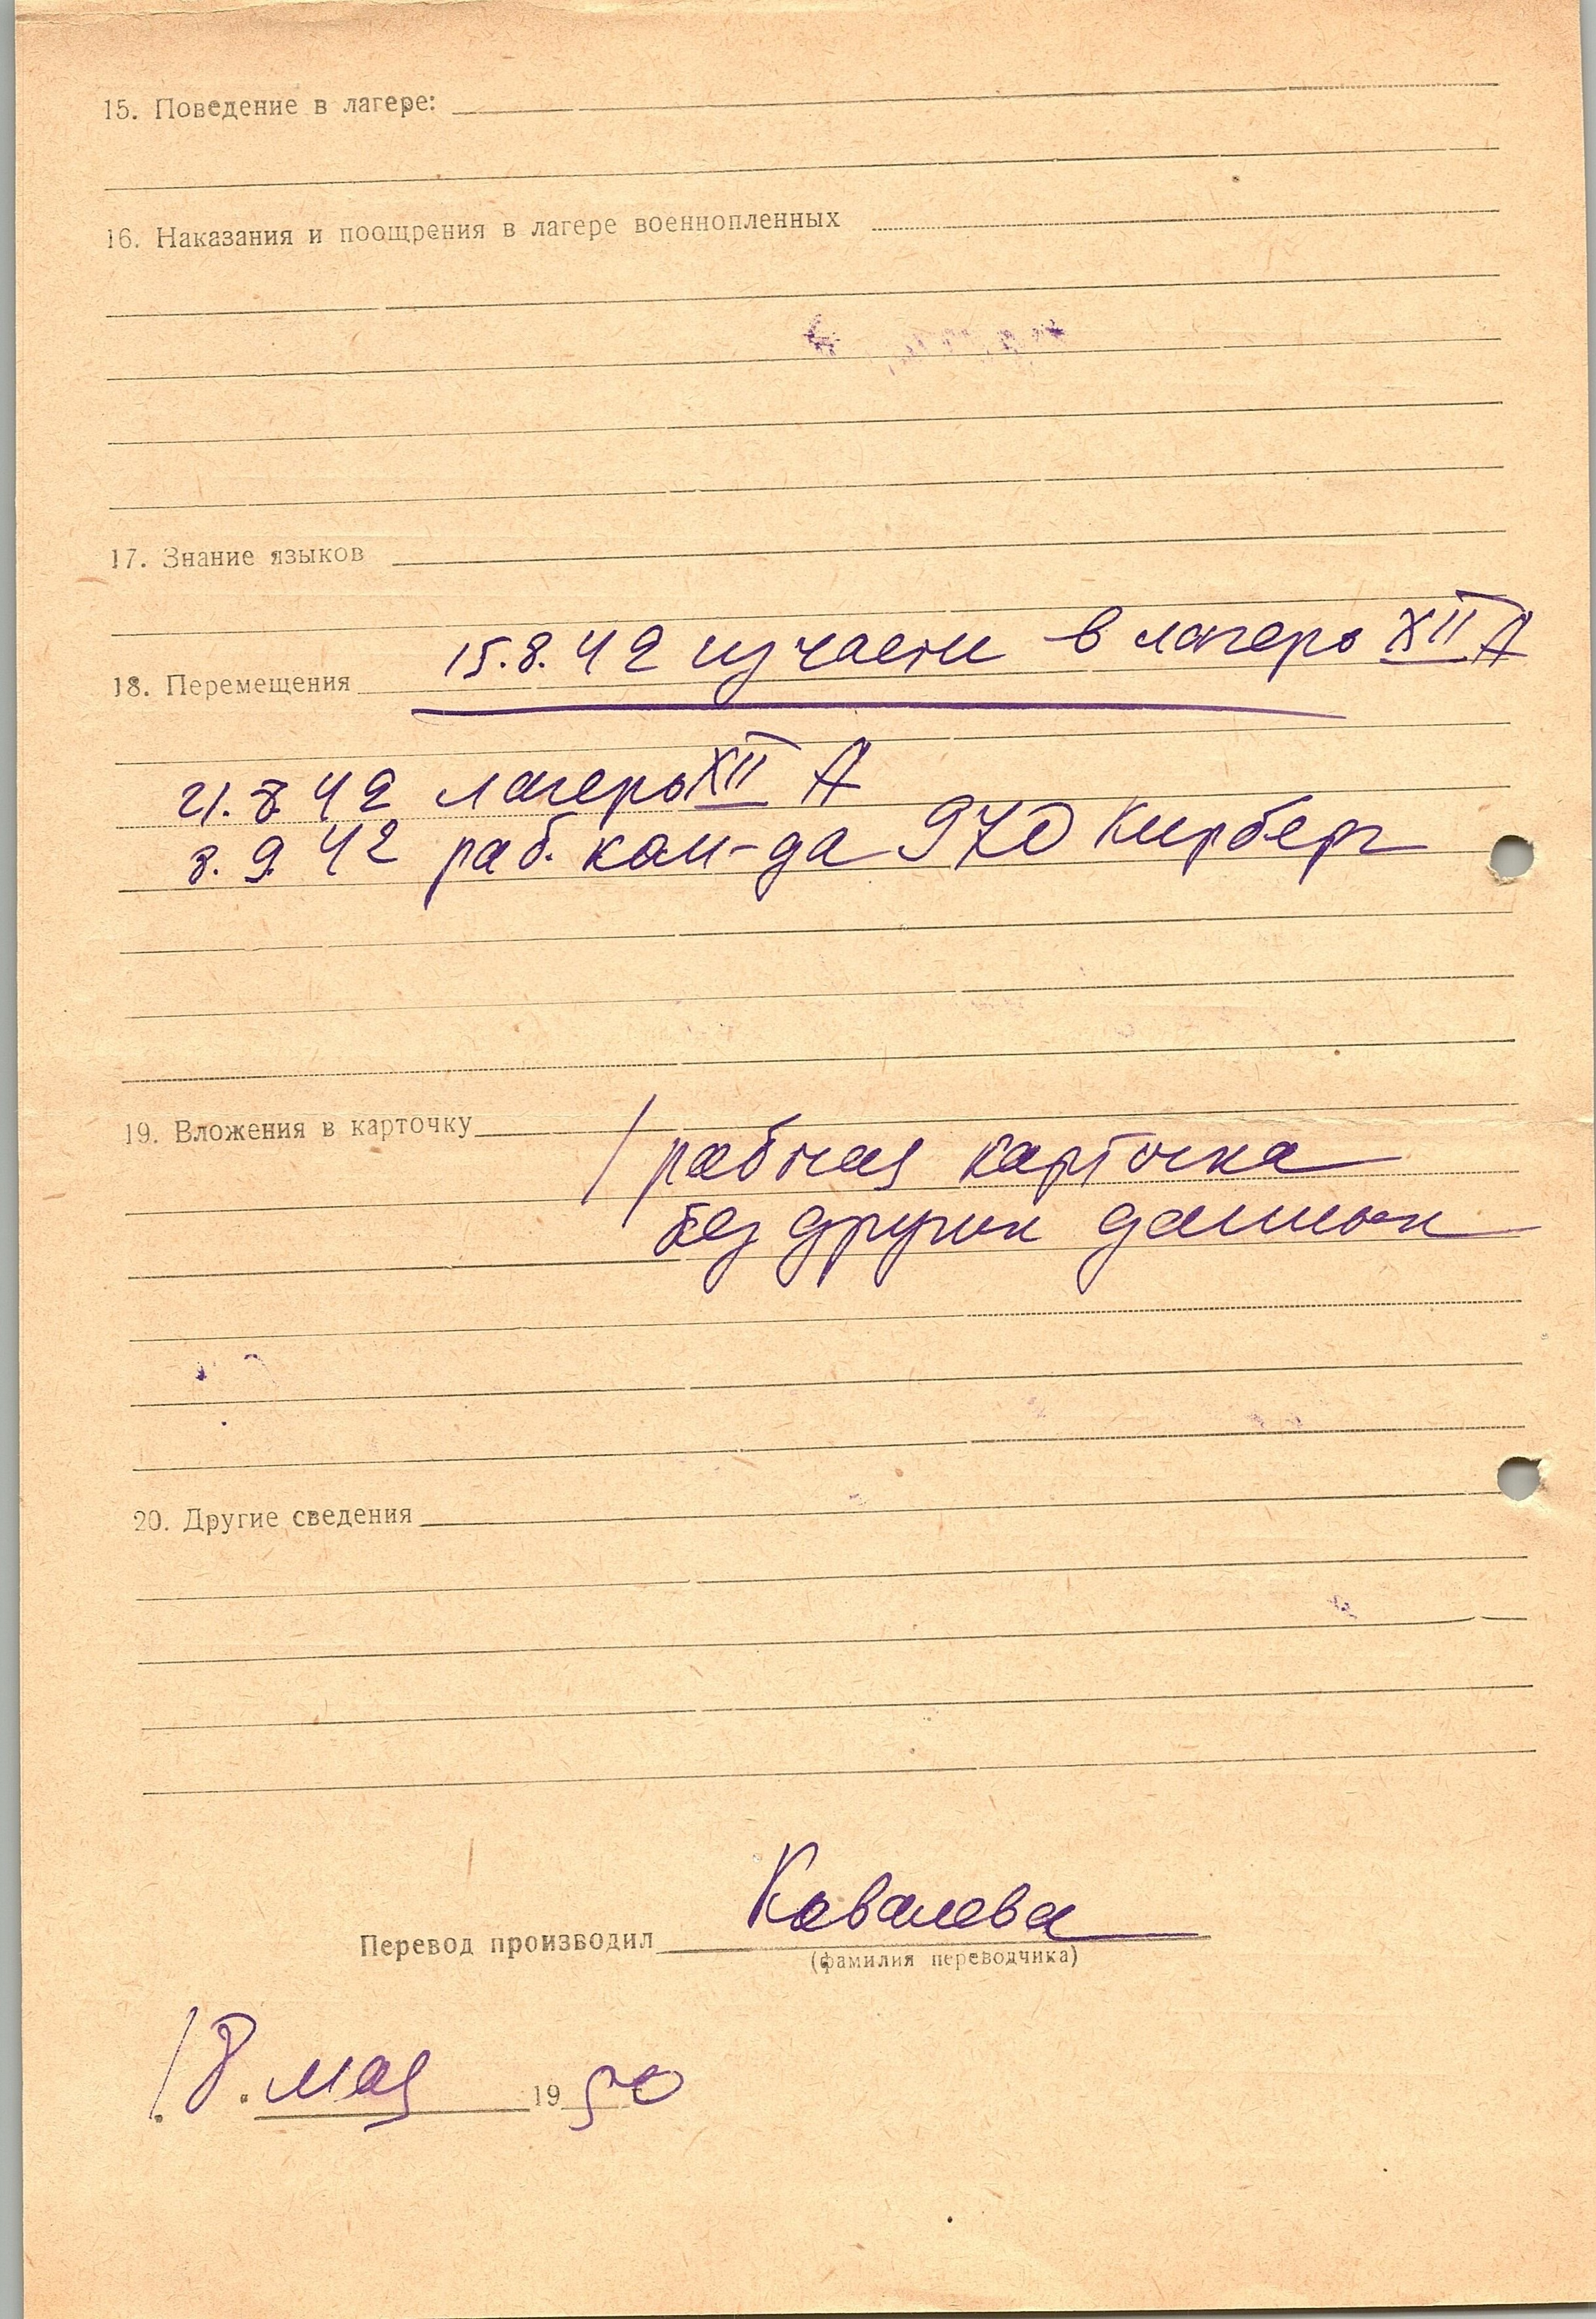 15. Поведение в лагере:
16. Наказания и поощрения в лагере военнопленных
17. Знание языков
15.8.42 из части в лагерь XII A
18. Перемещения
21.8 42 лагерь XII A
8.9.42 раб. ком-да 970 Кирберг
19. Вложения в карточку
рабочая карточка
без других данных
20. Другие сведения
Ковалева
Перевод производил
(фамилия переводчика)
18. мая 1950